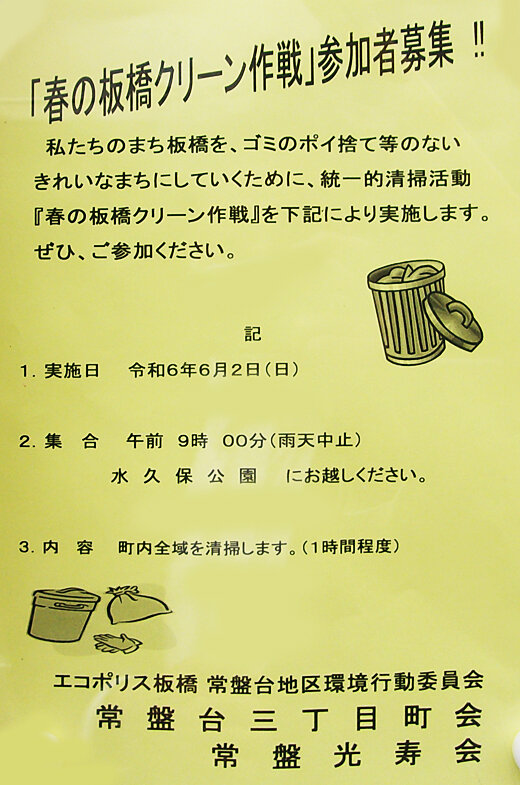 「春の板橋クリーン作戦」参加者募集 !!
私たちのまち板橋を、ゴミのポイ捨て等のない
きれいなまちにしていくために、統一的清掃活動
『春の板橋クリーン作戦』を下記により実施します。
ぜひ、ご参加ください。
記
1. 実施日　令和6年6月2日(日)
2. 集　合　午前　9時　00分(雨天中止)
水　久　保　公　園　にお越しください。
3. 内　容　町内全域を清掃します。(1時間程度)
エコポリス板橋 常盤台地区環境行動委員会
常　盤　台　三　丁　目　町　会
常　盤　光　寿　会